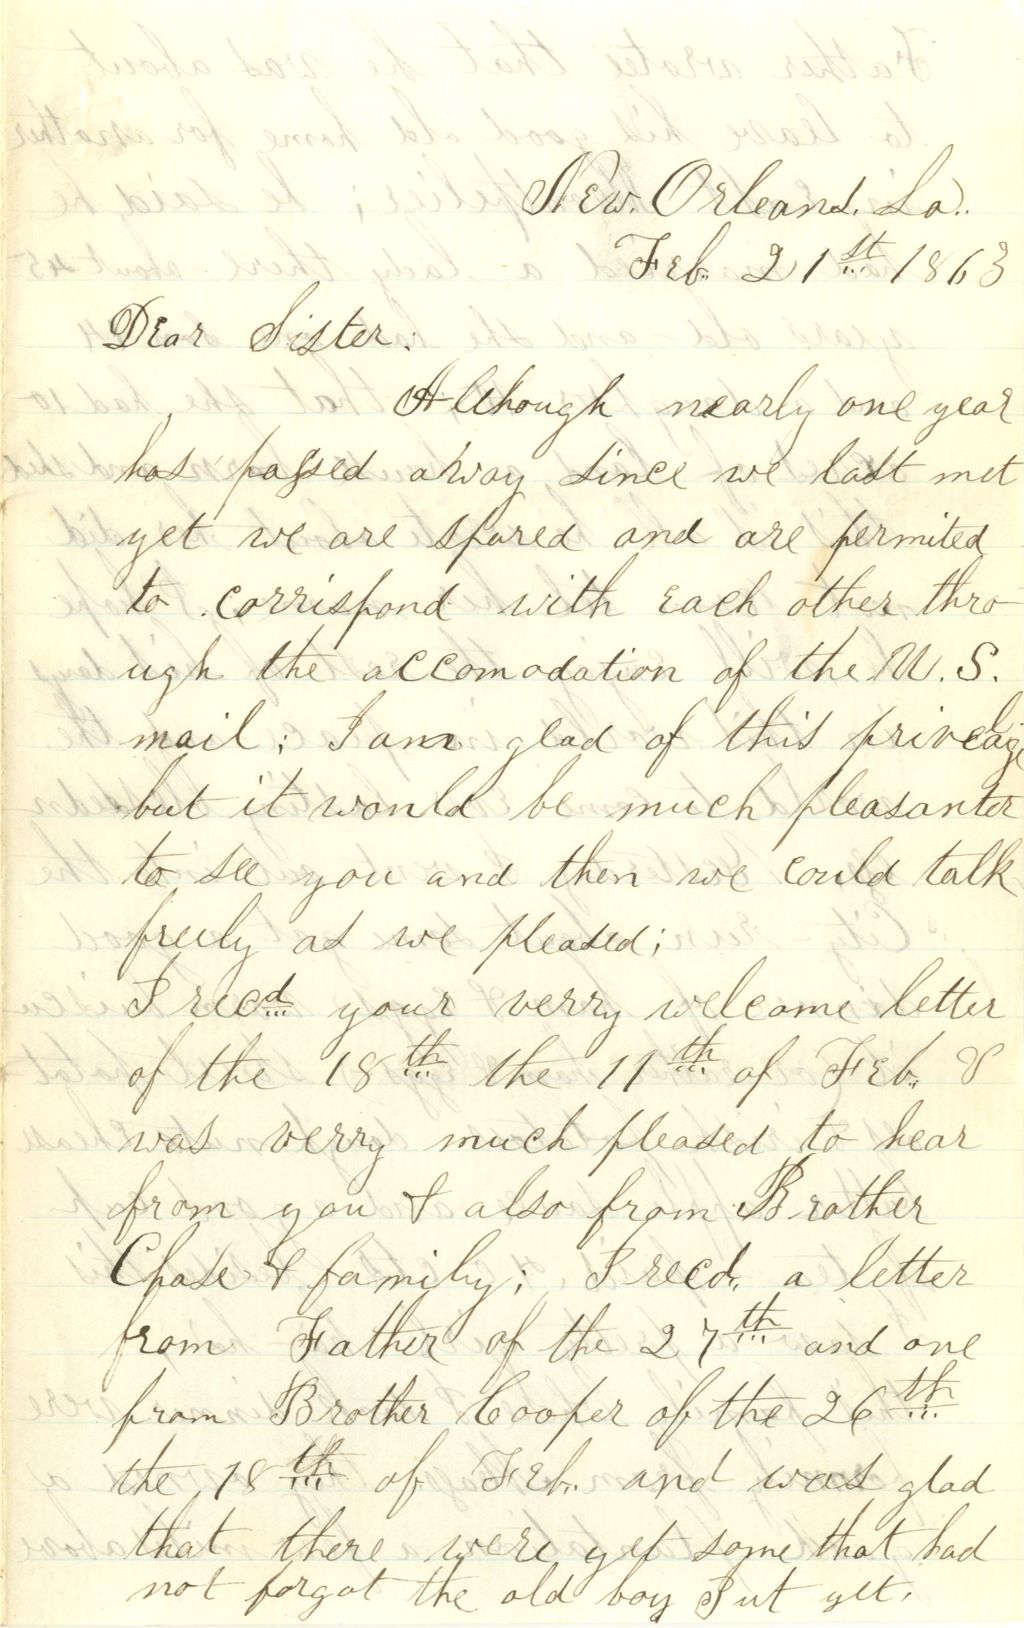 New. Orleans. La..
Feb. 21st 1863
Dear Sister:
Although nearly one year
has passed away since we last met
yet we are spared and are permited
to corrispond with each other thro-
ugh the accomodation of the U. S.
mail; I am glad of this privelage
but it would be much pleasanter
to see you and then we could talk
freely as we pleased;
I recd your verry welcome letter
of the 18th the 11th of Feb. &
was verry much pleased to hear
from you & also from Brother
Chase & family; I recd. a letter
from Father of the 27th and one
from Brother Cooper of the 26th
the 18th of Feb. and was glad
that there were yet some that had
not forgot the old boy yet.